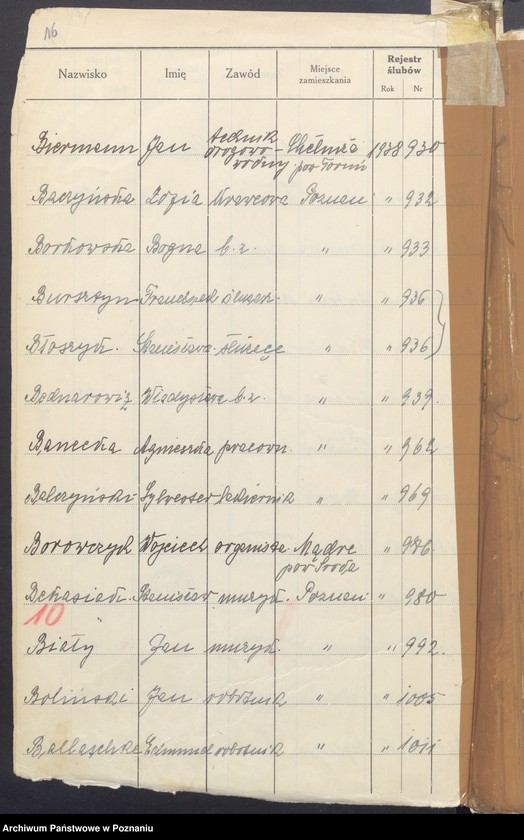 Nazwisko Imię Zawód Miejsce zamieszkania Rejestr ślubów
Rok Nr
Biermann Jan technik drogowo-wodny Chełmża pow Toruń 1938 930
Baczyńska Zofia krawcowa Poznań " 932
Borkowska Bogna b.z. " " 933
Bursztyn Franciszek ślusar. " " 936
Błoszyk. Stanisława służące " " 936
Bednarowicz Władysława b.z. " " 939.
Banecka Agnieszka pracown. " " 962
Balczyński Sylvester cukiernik " " 969
Borowczyk Wojciech organista Mądre pow Środa " 976.
Stanisław murzyk. Poznań " 980
10 "
Biały Jan muzyk. " " 992.
Boliński Jan robotnik " " 1005
Ballaschke Edmund robotnik " " 1011
Archiwum Państwowe w Poznaniu